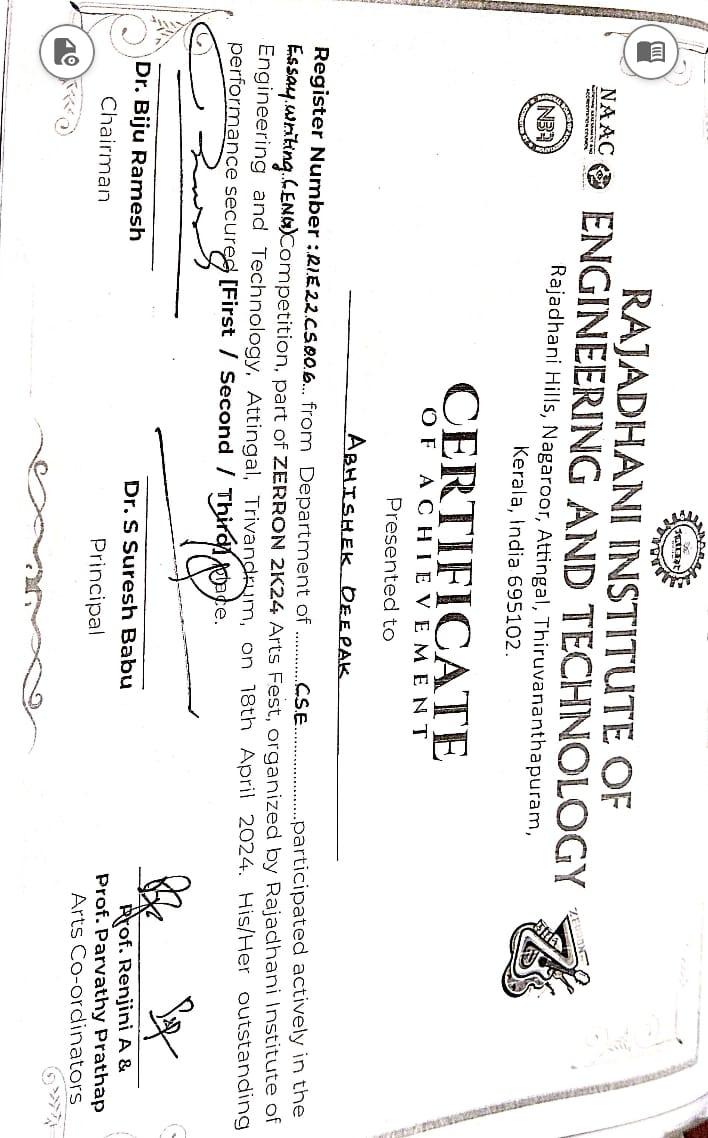 RAJADHANI INSTITUTE OF
ENGINEERING AND TECHNOLOGY
NAAC
NATIONAL ASSESSMENT AND
ACCREDITATION COUNCIL
NBA
ZERRON
Rajadhani Hills, Nagaroor, Attingal, Thiruvananthapuram,
Kerala, India 695102.
CERTIFICATE
OF ACHIEVEMENT
Presented to
ABHISHEK DEEPAK
Register Number : RIE22CS006... from Department of ...........CSE.....................participated actively in the
Essay writing (ENG) Competition, part of ZERRON 2K24 Arts Fest, organized by Rajadhani Institute of
Engineering and Technology, Attingal, Trivandrum, on 18th April 2024. His/Her outstanding
performance secured [First / Second / Third] place.
Dr. Biju Ramesh
Chairman
Dr. S Suresh Babu
Principal
Prof. Renjini A &
Prof. Parvathy Prathap
Arts Co-ordinators